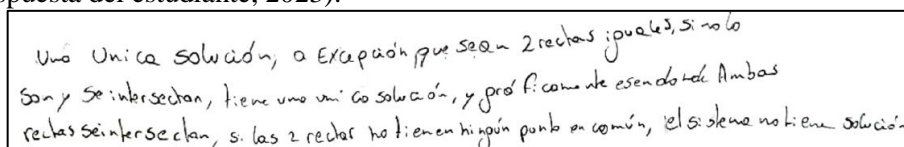 spuesta del estudiante, 2023).
Una Unica solución, a Excepción que sean 2 rectas iguales, si no lo
son y se intersectan, tiene una unica solución, y gráficamente es en donde Ambas
rectas se intersectan, si las 2 rectas no tienen ningún punto en común, el sistema no tiene solución